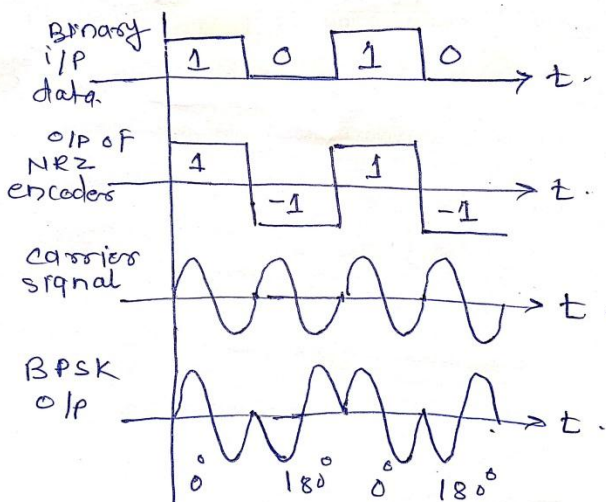 Binary
i/p
data.
1 0 1 0
t.
O/P of
NRZ
encoder
1 -1 1 -1
t.
carrier
signal
t
BPSK
O/p
t.
0° 180° 0° 180°